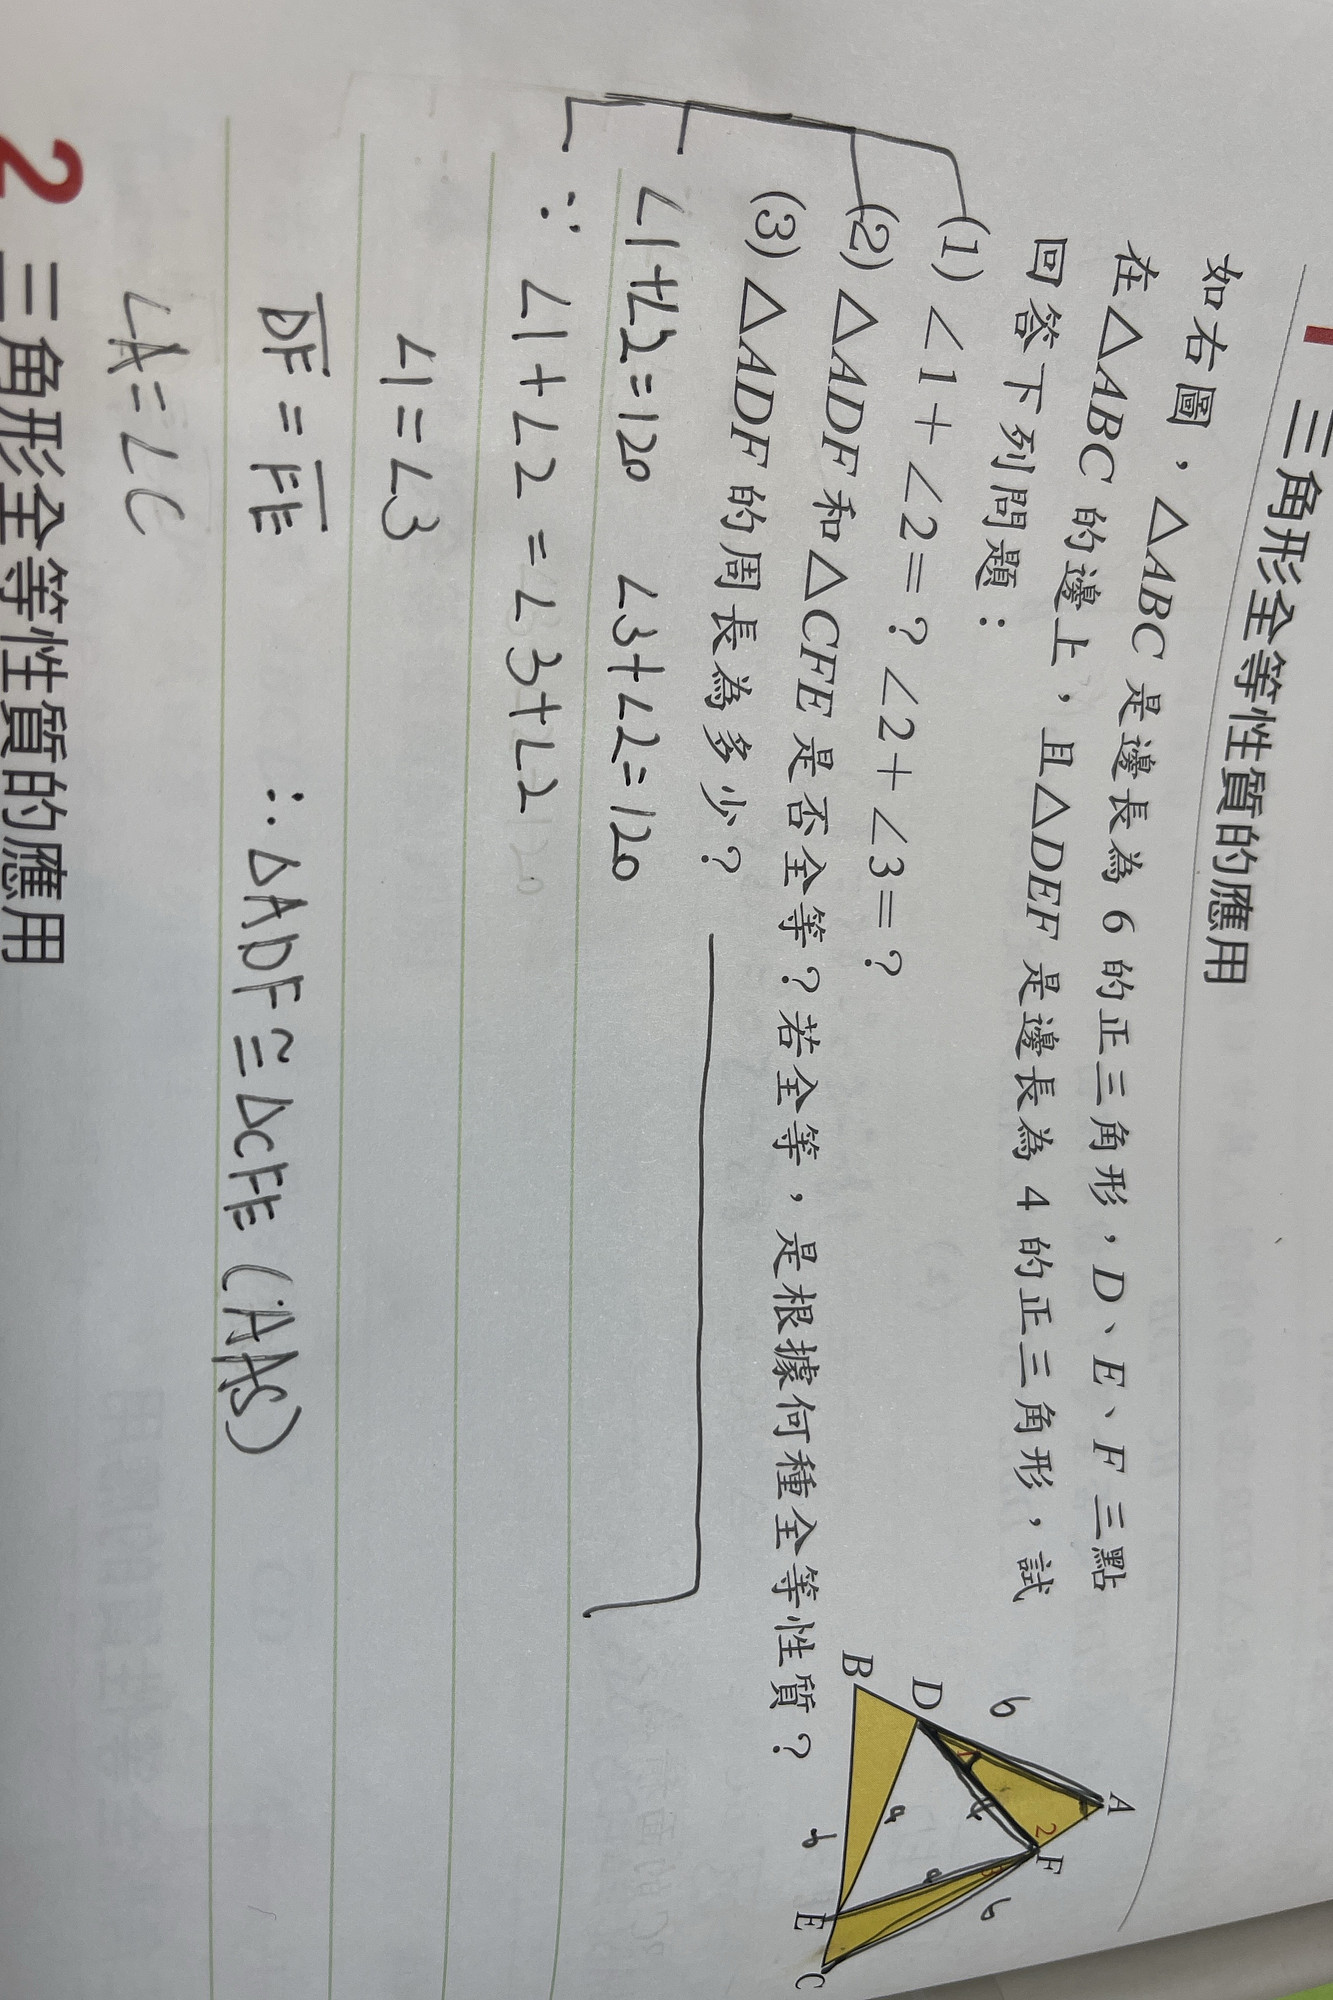 1 三角形全等性質的應用
如右圖，△ABC 是邊長為 6 的正三角形，D、E、F 三點
在△ABC 的邊上，且△DEF 是邊長為 4 的正三角形，試
回答下列問題：
(1) ∠1+∠2=？∠2+∠3=？
(2) △ADF 和△CFE 是否全等？若全等，是根據何種全等性質？
(3) △ADF 的周長為多少？
A
6
D
1
2
F
4
3
B
6
6
E
C
∠1+∠2=120 ∠3+∠2=120
∵ ∠1+∠2=∠3+∠2
∠1=∠3
DF=FE ∴△ADF≅△CFE (AAS)
∠A=∠C
2 三角形全等性質的應用